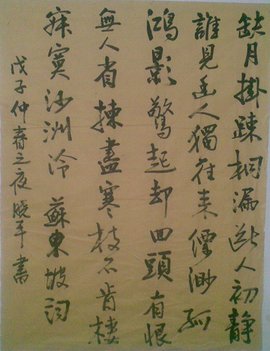 缺月掛疎桐漏斷人初靜
誰見幽人獨往來縹渺孤
鴻影驚起却回頭有恨
無人省揀盡寒枝不肯棲
寂寞沙洲冷 蘇東坡詞
戊子仲春之夜 晓平書